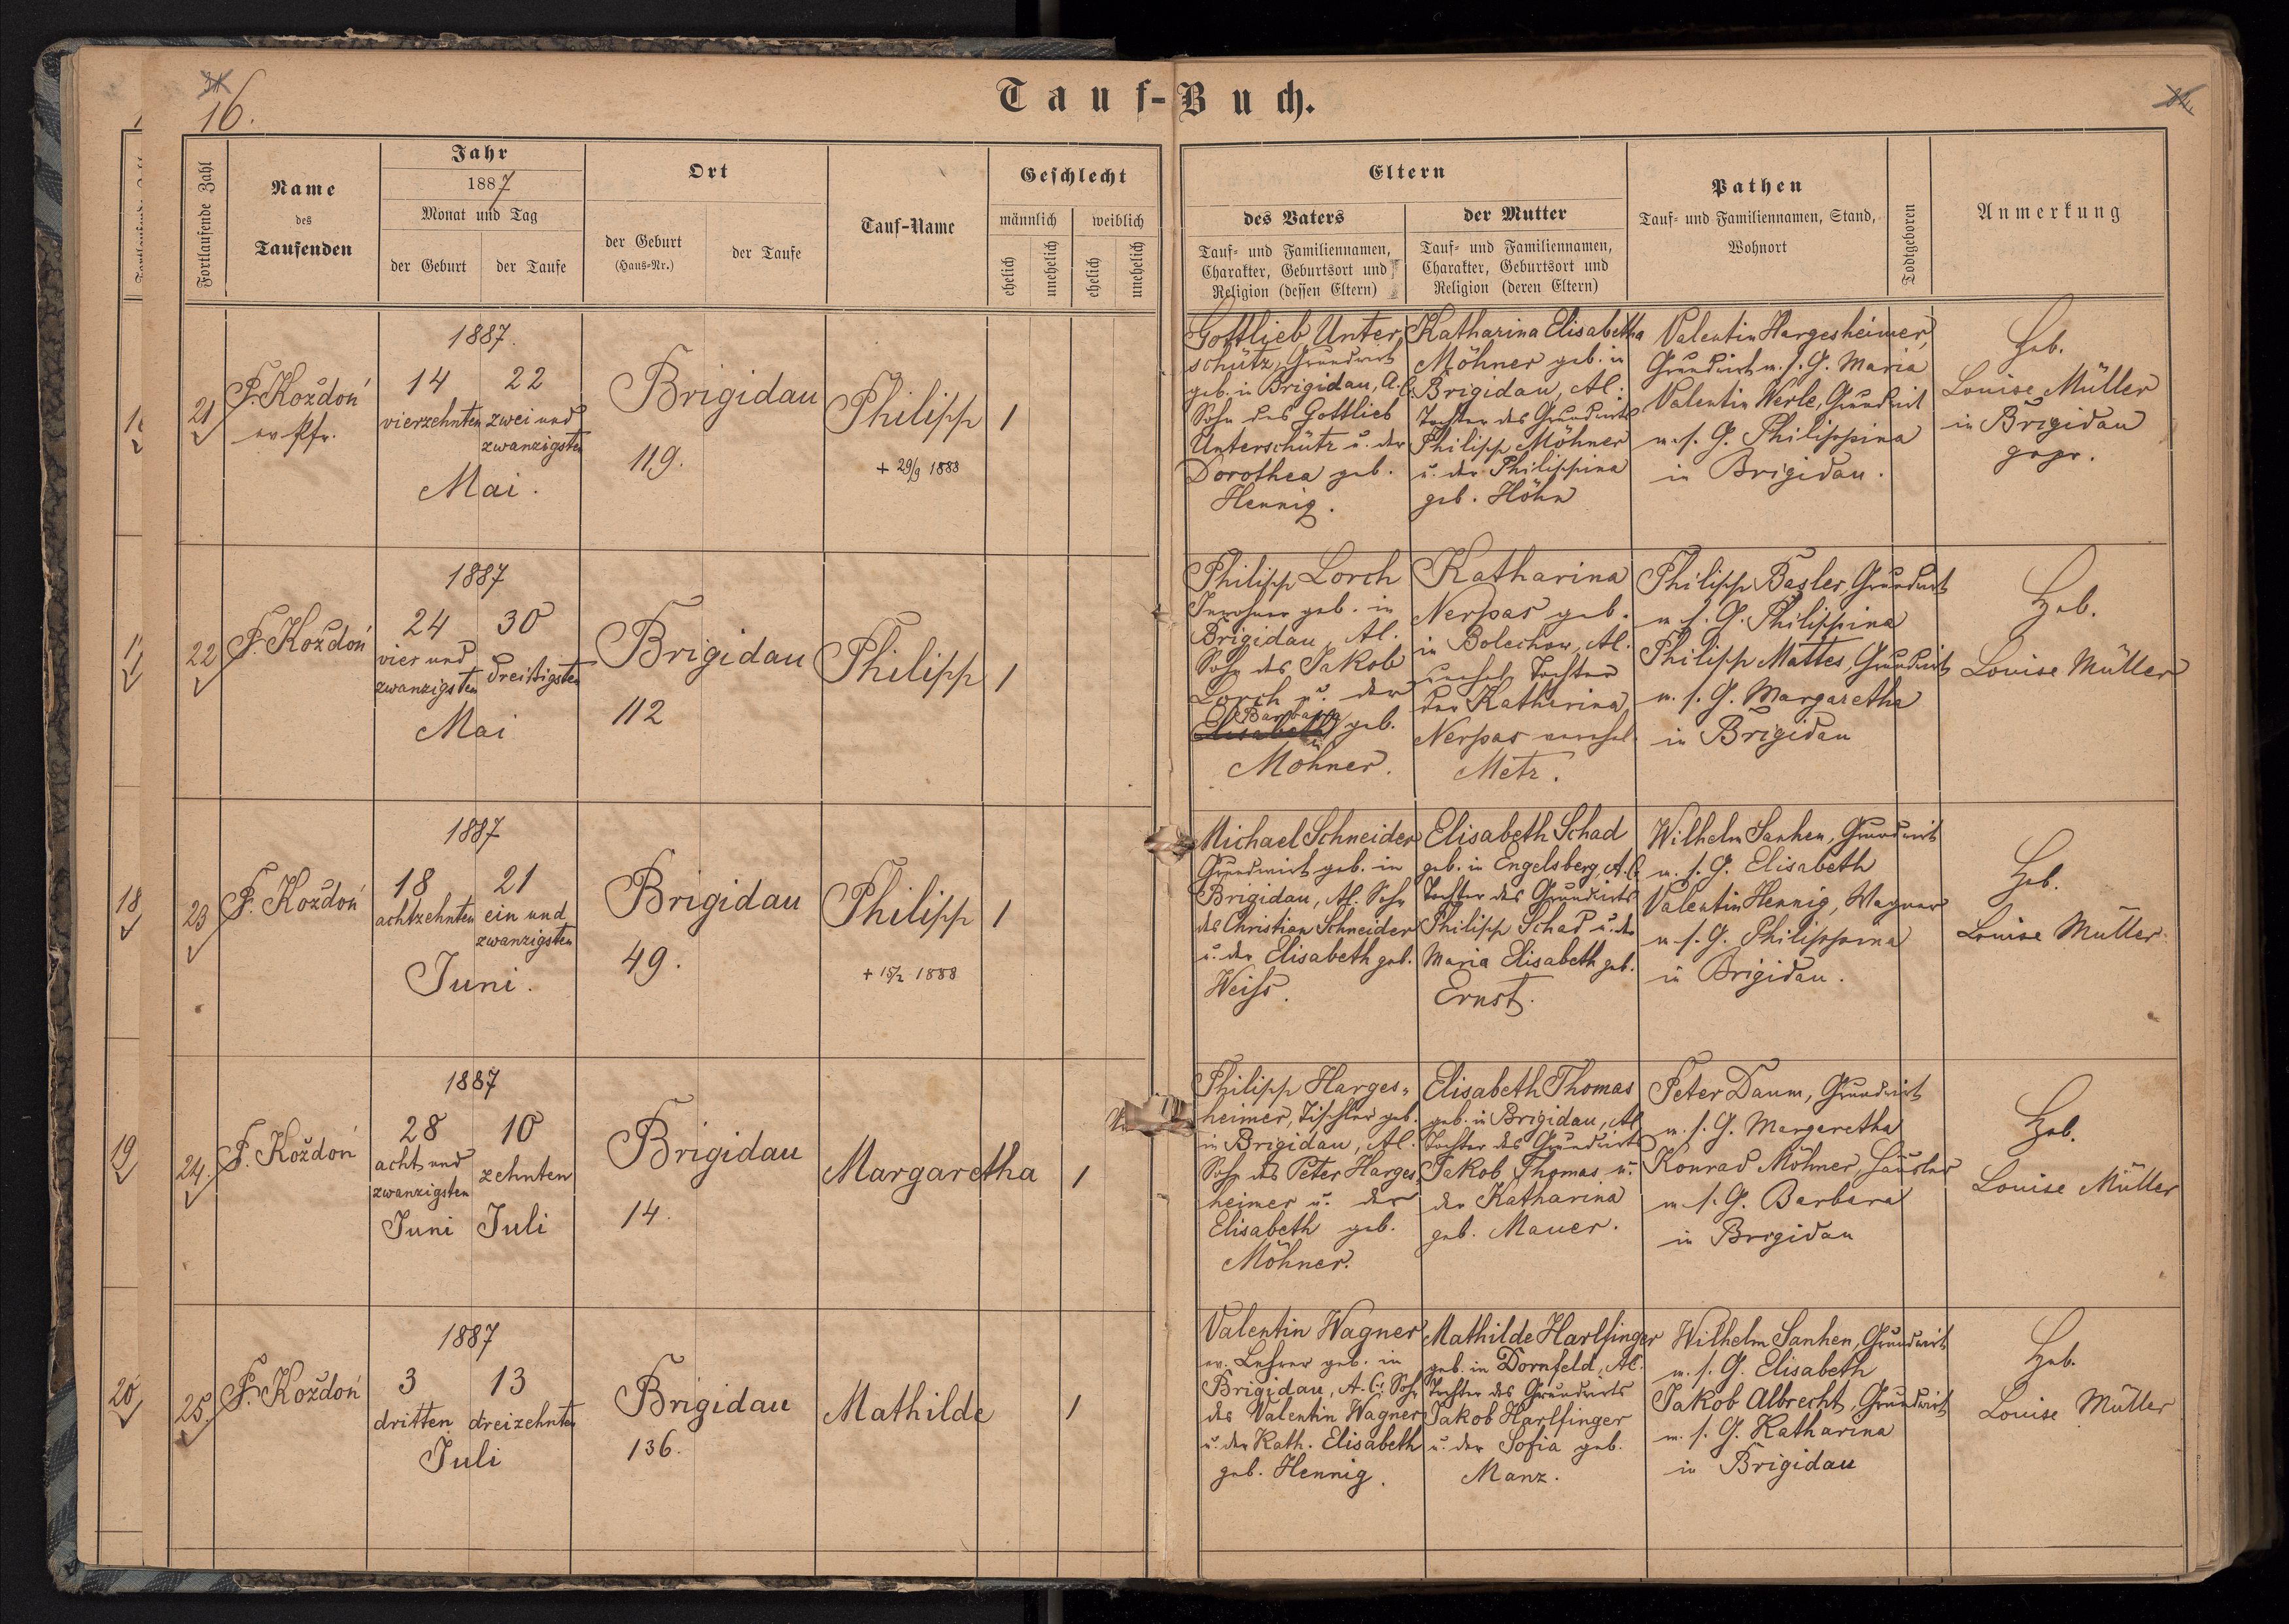 16.
Tauf-Buch.
Fortlaufende Zahl
Name
des
Taufenden
Jahr
1887
Monat und Tag
der Geburt
der Taufe
Ort
der Geburt
(Haus-Nr.)
der Taufe
Tauf-Name
Geschlecht
männlich
weiblich
ehelich
unehelich
ehelich
unehelich
Eltern
des Vaters
Tauf- und Familiennamen,
Charakter, Geburtsort und
Religion (dessen Eltern)
der Mutter
Tauf- und Familiennamen,
Charakter, Geburtsort und
Religion (deren Eltern)
Pathen
Tauf- und Familiennamen, Stand,
Wohnort
Todtgeboren
Anmerkung
21
F. Koždoń
ev. Pfr.
1887.
14
vierzehnten
22
zwei und
zwanzigsten
Mai.
Brigidau
119.
Philipp
+ 29/9 1888
1
Gottlieb Unter
schütz, Grundwirt
geb. in Brigidau, A.C.
Sohn des Gottlieb
Unterschütz u. der
Dorothea geb.
Hennig.
Katharina Elisabetha
Möhner geb. in
Brigidau, AC.
Tochter des Grundwirts
Philipp Möhner
u. der Philippina
geb. Höhn
Valentin Hargesheimer,
Grundwirt m. s. G. Maria
Valentin Werle, Grundwirt
m. s. G. Philippina
in Brigidau.
Heb.
Louise Müller
in Brigidau
gepr.
22
F. Koždoń
1887
24
vier und
zwanzigsten
30
dreißigsten
Mai
Brigidau
112
Philipp
1
Philipp Lorch
Inwohner geb. in
Brigidau, AC.
Sohn des Jakob
Lorch u. der
Barbara
Elisabeth geb.
Möhner.
Katharina
Nerpas geb.
in Bolechow, AC.
unehel. Tochter
der Katharina
Nerpas verehel.
Metz.
Philipp Basler, Grundwirt
m. s. G. Philippina
Philipp Mattes, Grundwirt
m. s. G. Margaretha
in Brigidau
Heb.
Louise Müller
23
F. Koždoń
1887
18
achtzehnten
21
ein und
zwanzigsten
Juni.
Brigidau
49.
Philipp
+ 15/2 1888
1
Michael Schneider
Grundwirt geb. in
Brigidau, AC. Sohn
des Christian Schneider
u. der Elisabeth geb.
Weiss.
Elisabeth Schad
geb. in Engelsberg, A.C.
Tochter des Grundwirts
Philipp Schad u. der
Maria Elisabeth geb.
Ernst.
Wilhelm Sanhen, Grundwirt
m. s. G. Elisabeth
Valentin Hennig, Wagner
m. s. G. Philippina
in Brigidau.
Heb.
Louise Müller
24.
F. Koždoń
1887
28
acht und
zwanzigsten
Juni
10
zehnten
Juli
Brigidau
14.
Margaretha
1
Philipp Harges-
heimer, Tischler geb.
in Brigidau, AC.
Sohn des Peter Harges-
heimer u. der
Elisabeth geb.
Möhner.
Elisabeth Thomas
geb. in Brigidau, AC
Tochter des Grundwirts
Jakob Thomas u.
der Katharina
geb. Mauer.
Peter Daum, Grundwirt
m. s. G. Margaretha
Konrad Möhner, Häusler
m. s. G. Barbara
in Brigidau
Heb.
Louise Müller
25.
F. Koždoń
1887
3
dritten
13
dreizehnten
Juli
Brigidau
136.
Mathilde
1
Valentin Wagner
ev. Lehrer geb. in
Brigidau, A.C., Sohn
des Valentin Wagner
u. der Kath. Elisabeth
geb. Hennig.
Mathilde Harlfinger
geb. in Dornfeld, AC.
Tochter des Grundwirts
Jakob Harlfinger
u. der Sofia geb.
Manz.
Wilhelm Sanhen, Grundwirt
m. s. G. Elisabeth
Jakob Albrecht, Grundwirt
m. s. G. Katharina
in Brigidau
Heb.
Louise Müller
18
19
20